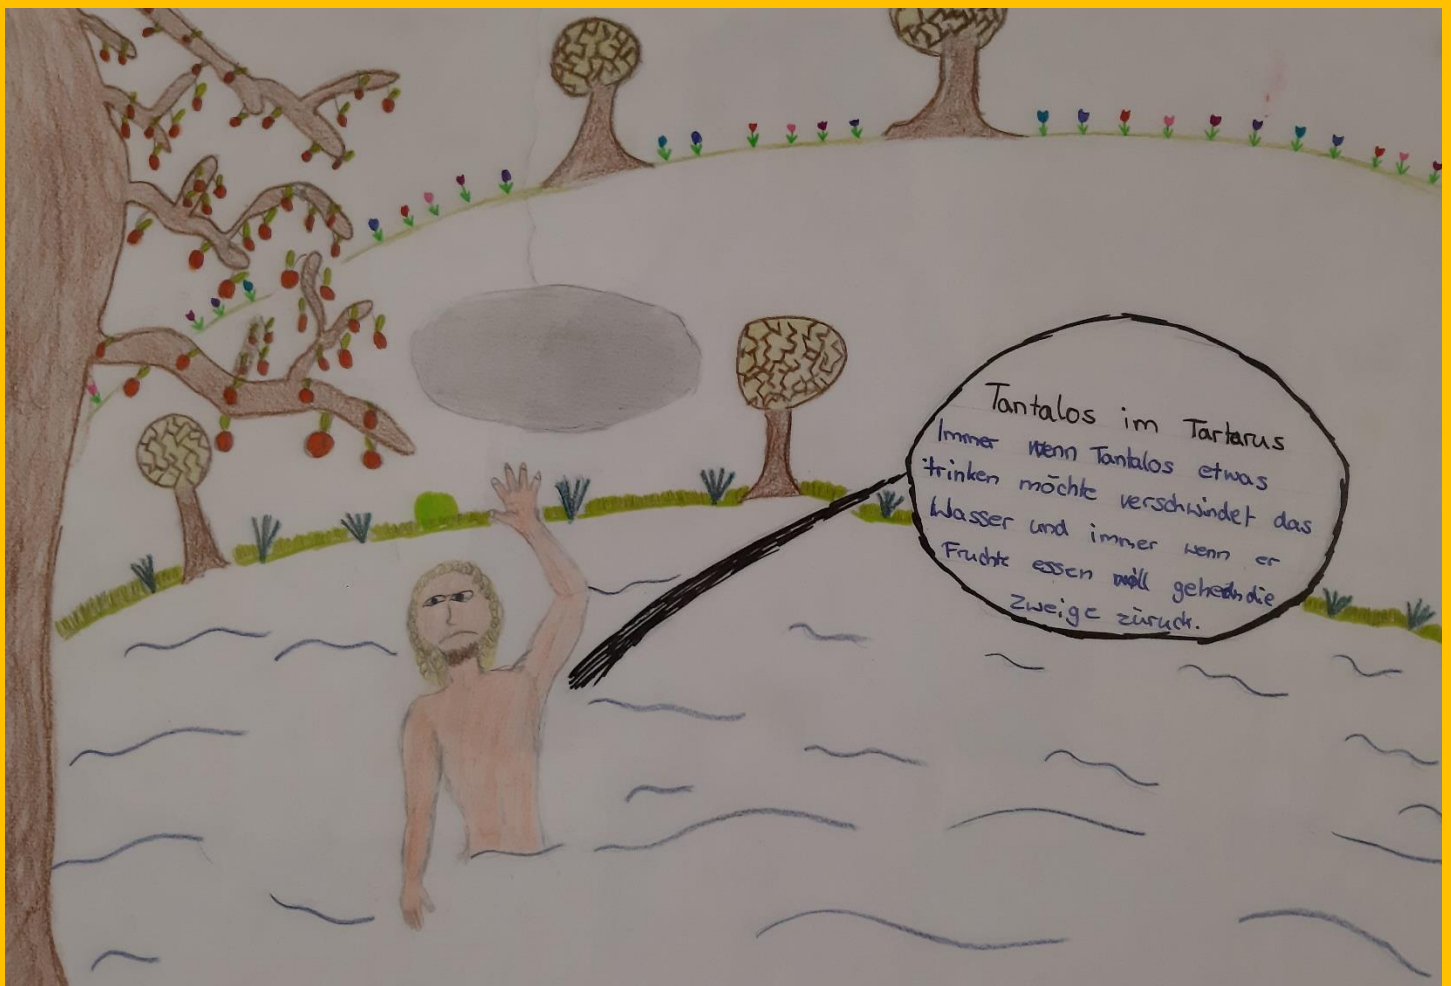 Tantalos im Tartarus
Immer wenn Tantalos etwas
trinken möchte verschwindet das
Wasser und immer wenn er
Fruchte essen will gehen die
Zweige zürück.